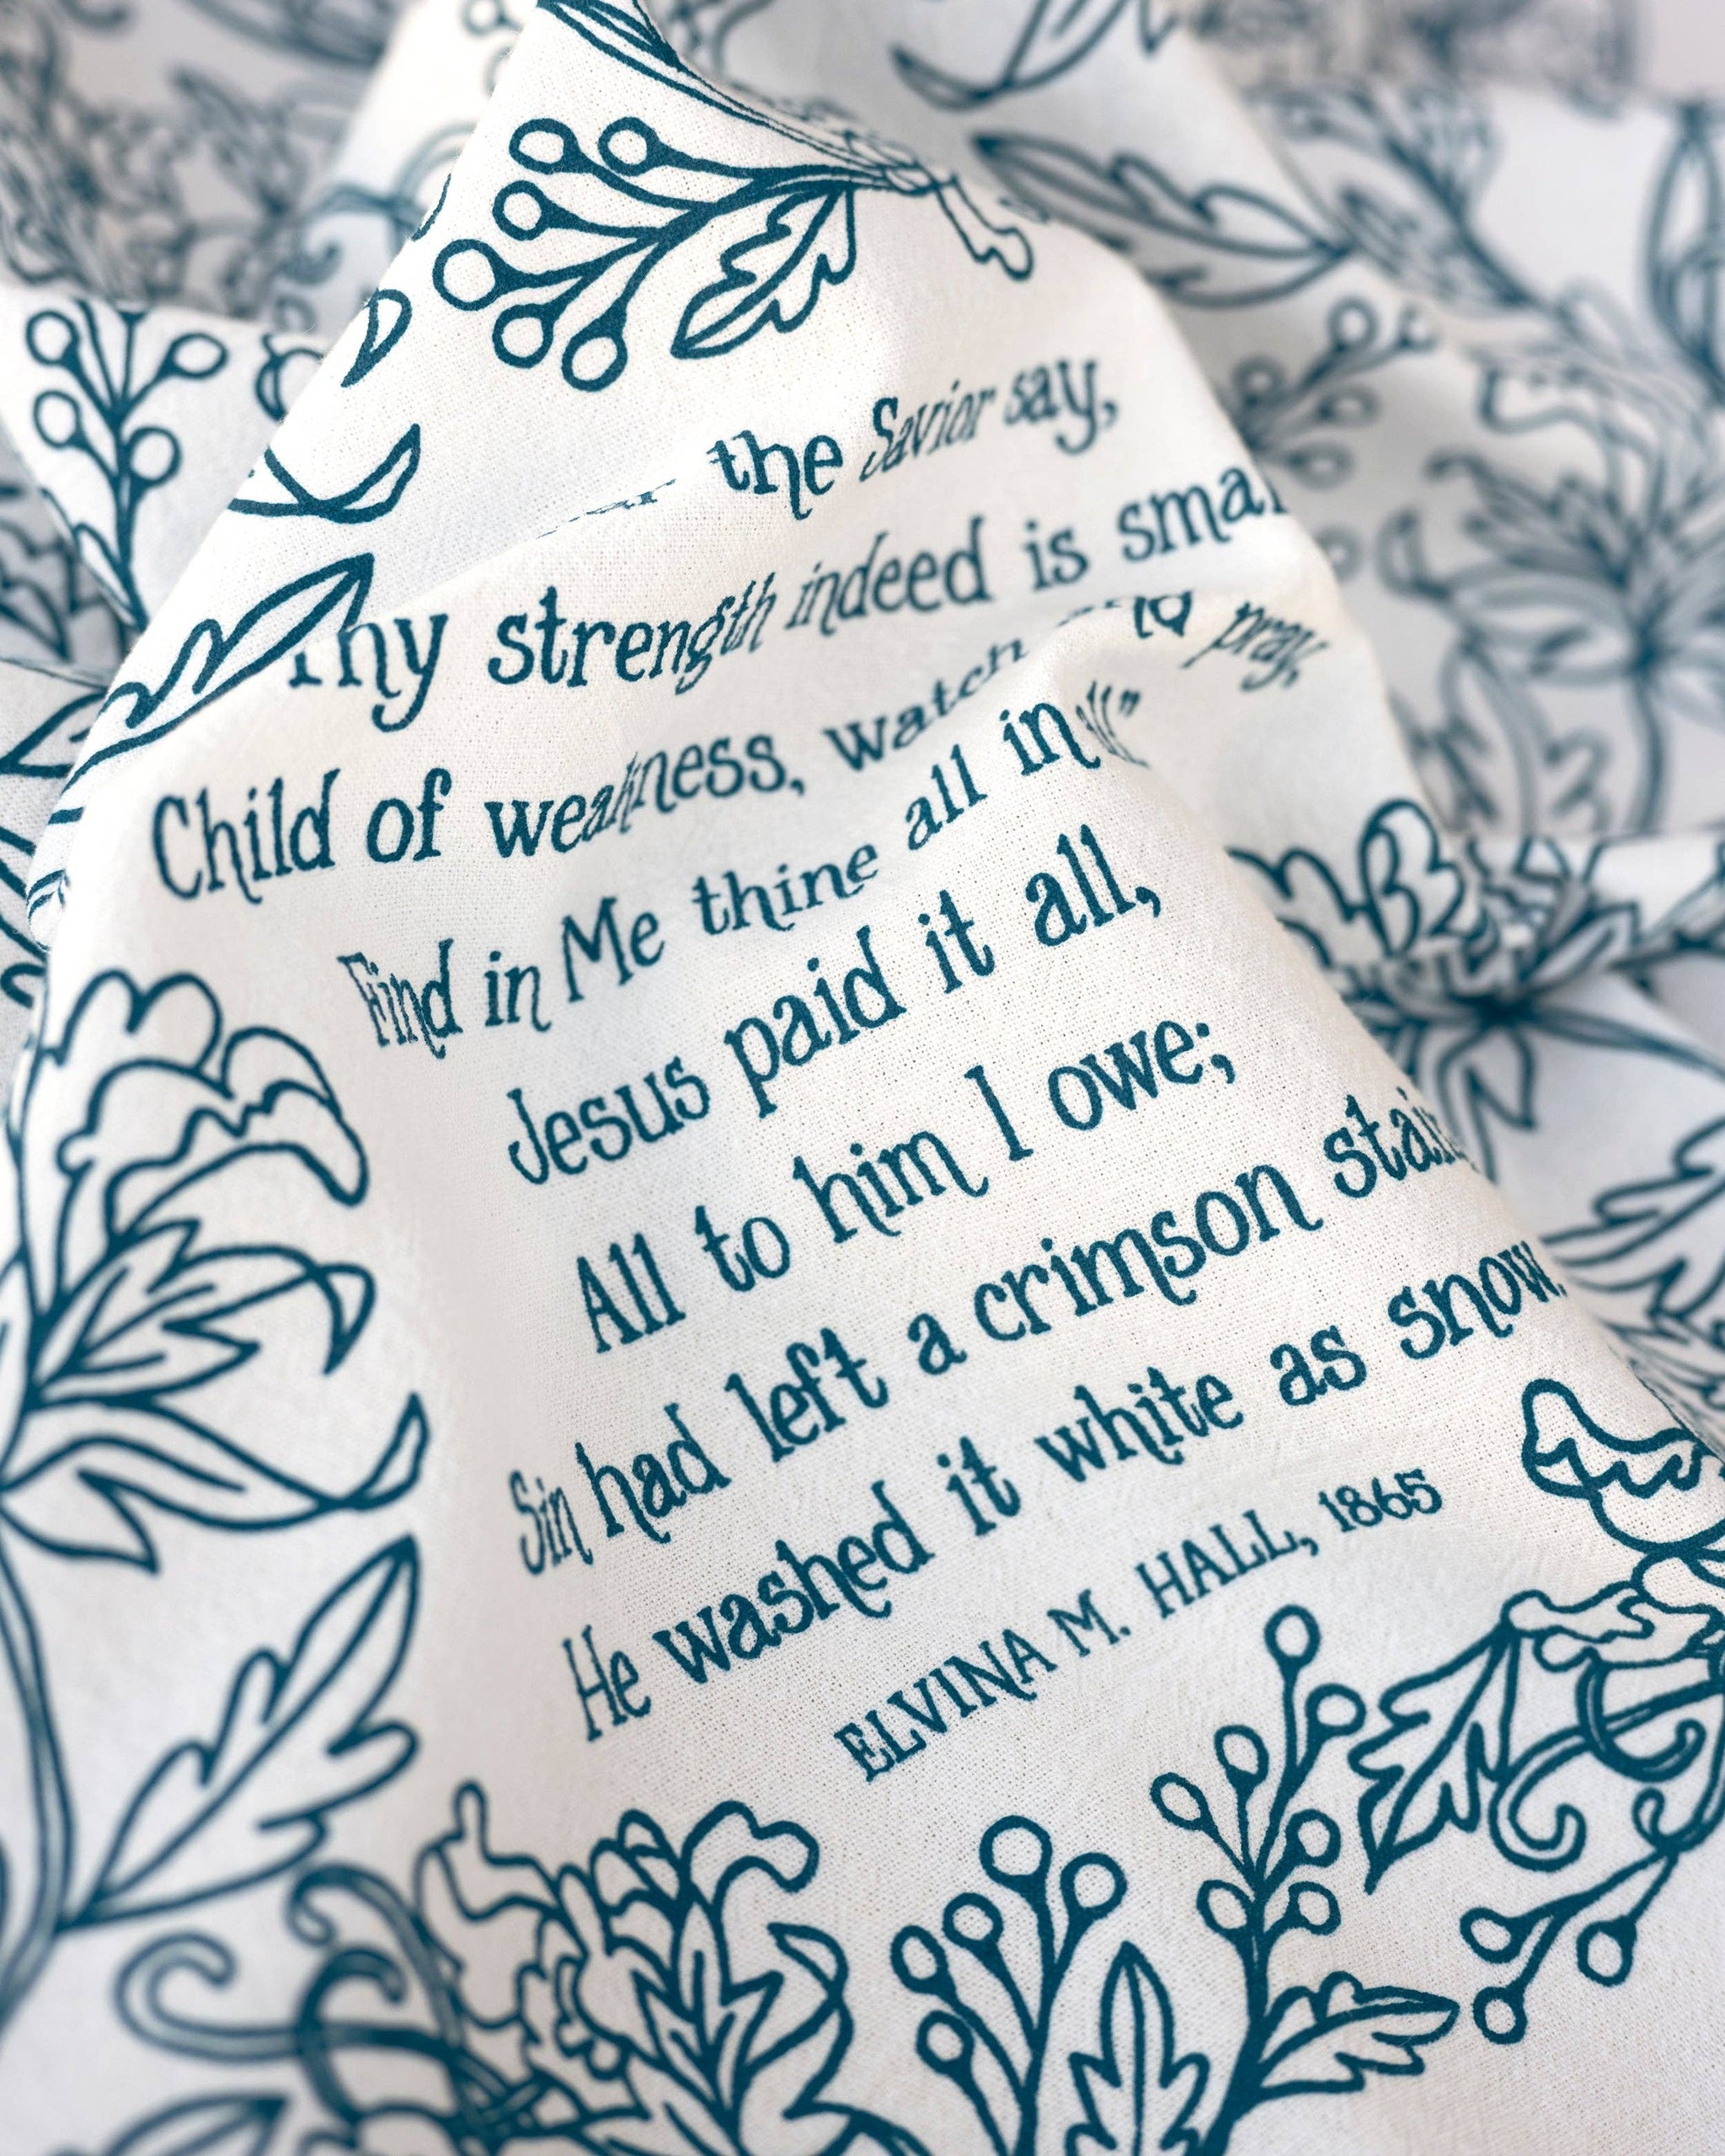 the Savior say,
Thy strength indeed is small
Child of weakness, watch and pray,
Find in Me thine all in all"
Jesus paid it all,
All to him I owe;
Sin had left a crimson stain
He washed it white as snow.
ELVINA M. HALL, 1865